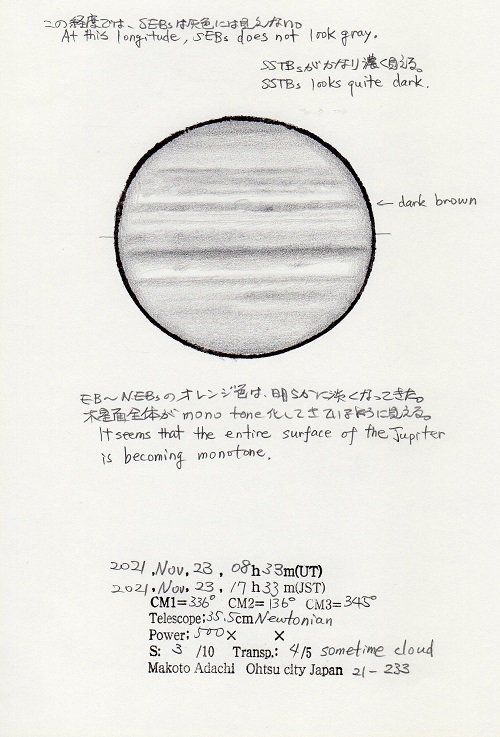 この経度では、SEBsは灰色には見えない。
At this longitude, SEBs does not look gray.
SSTBsがかなり濃く見える。
SSTBs looks quite dark.
← dark brown
EB～NEBsのオレンジ色は、明らかに淡くなってきた。
木星面全体が mono tone化してきているように見える。
It seems that the entire surface of the Jupiter
is becoming monotone.
2021, Nov. 23, 08h33m(UT)
2021, Nov. 23, 17h33m(JST)
CM1=336° CM2=136° CM3=345°
Telescope; 35.5cm Newtonian
Power; 500× ×
S: 3 /10 Transp.: 4/5 sometime cloud
Makoto Adachi Ohtsu city Japan 21-233